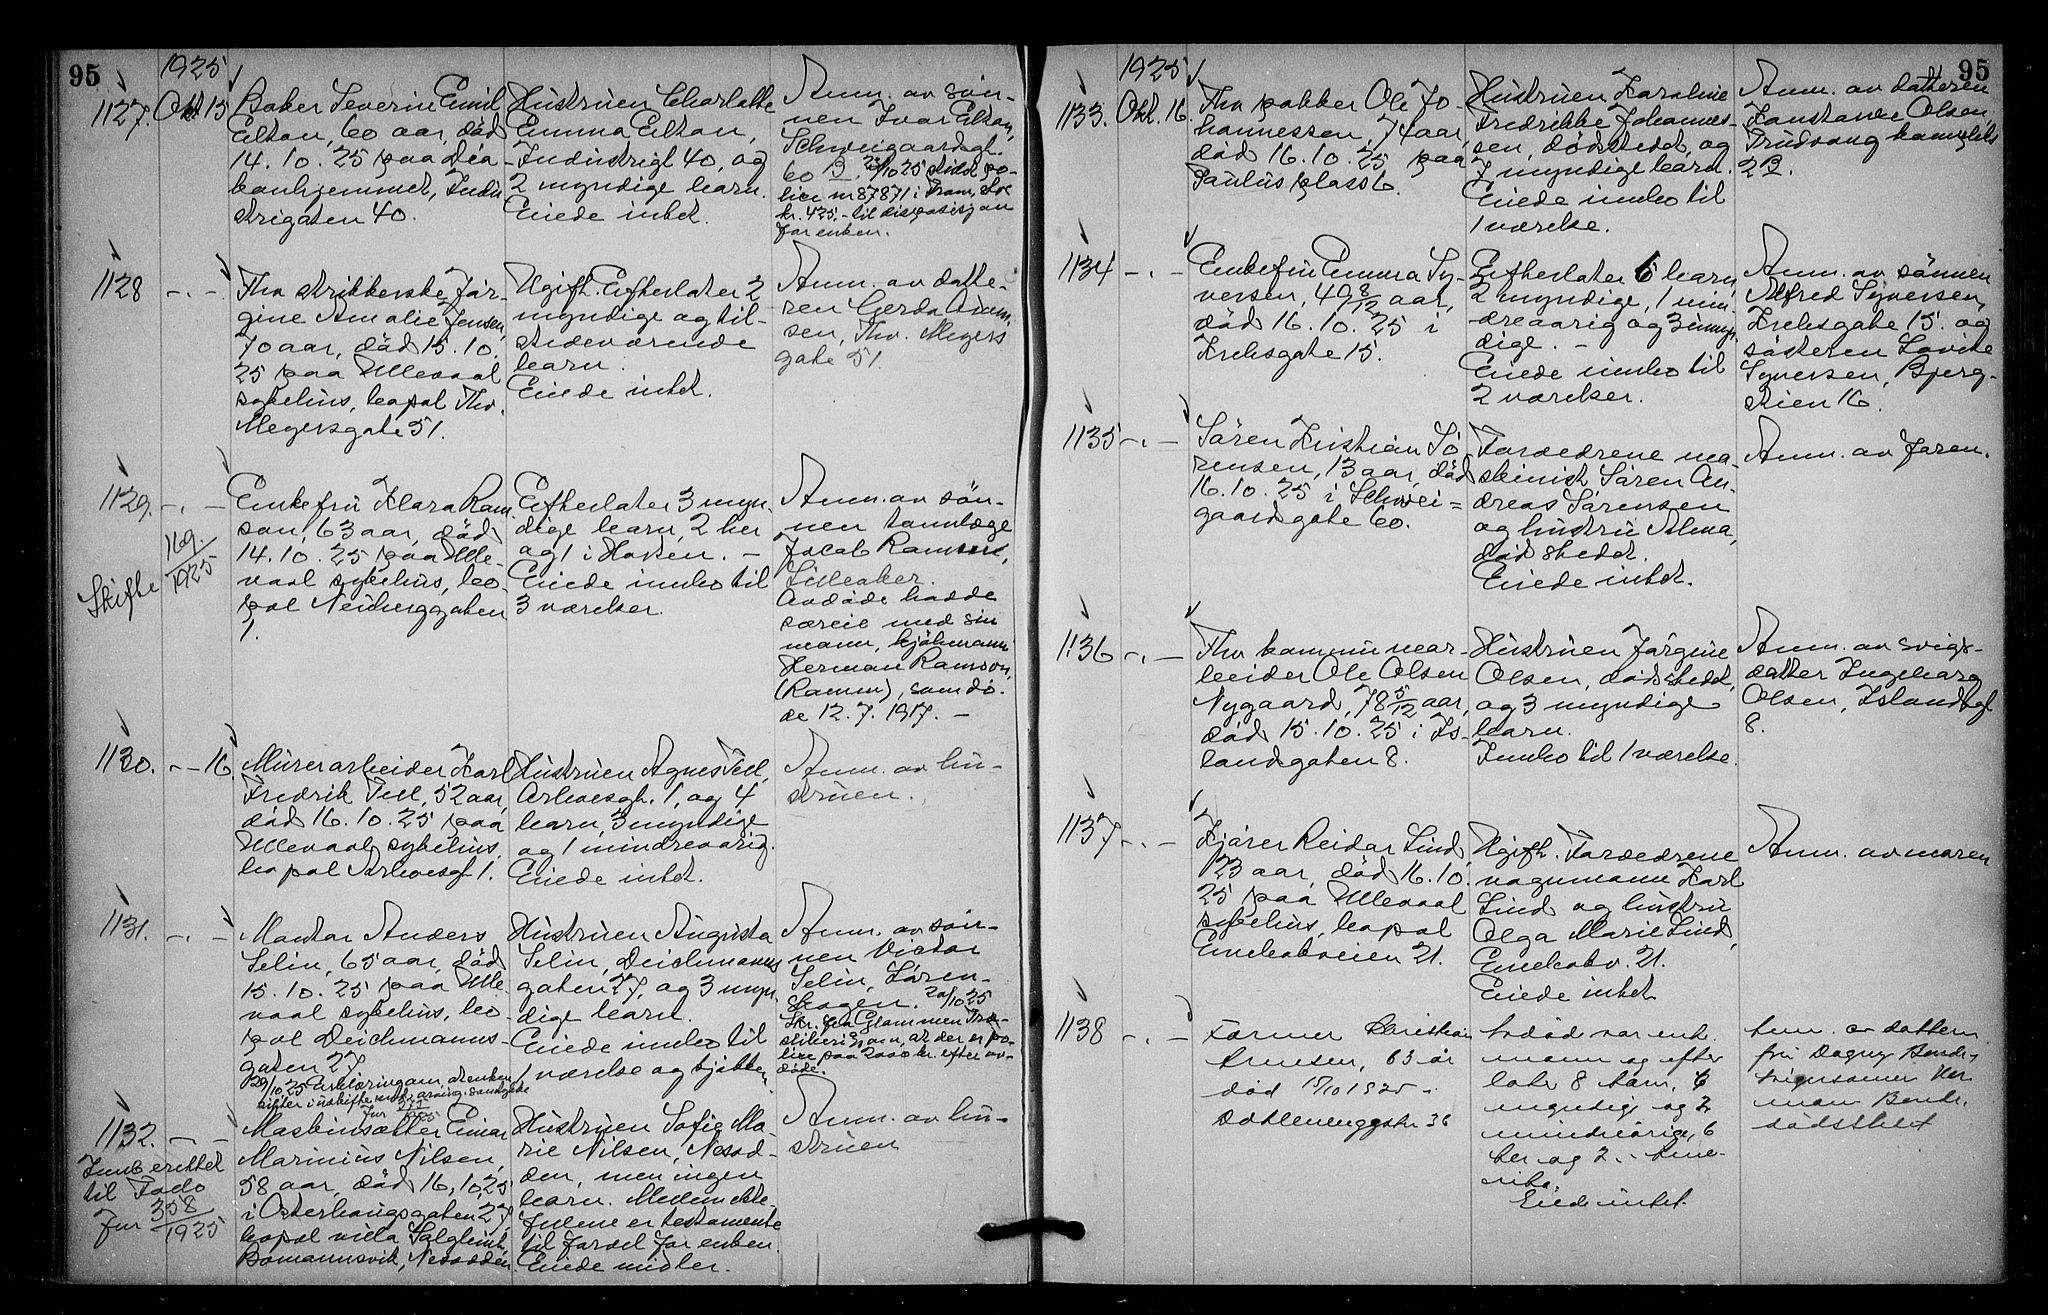 95
1925
1127. Okt 15
Baker Severin Emil
Elton, 60 aar, död
14.10.25 paa Dia-
konhjemmet, Indu
strigaten 40.
Hustruen Charlotte
Emma Elton,
Industrigt 40, og
2 myndige barn.
Eiede intet.
Anm. av søn-
nen Ivar Elton,
Schweigaardsgt.
60 B. 23/10 25 po-
lice nr 87871 i Fram,
kr. 425.- til disposisjon
for enken.
1128 -.-
Fhv strikkerske Jör-
gine Amalie Jensen,
70 aar, död 15.10.
25 paa Ullevaal
sykehus, bopal Thv.
Meyersgate 51.
Ugift. Efterlater 2
myndige og til-
stedeværende
barn.
Eiede intet.
Anm. av datte-
ren Gerda Adam-
sen, Thv. Meyers
gate 51.
1129. -.-
Skifte 169./1925
Enkefru Klara Ram
son, 63 aar, död
14.10.25 paa Ulle-
vaal sykehus, bo
pal Neuberggaten
1.
Efterlater 3 myn-
dige barn, 2 her
og 1 i Horten. -
Eiede innbo til
3 værelser.
Anm. av søn-
nen tannlæge
Jacob Ramson,
Lilleaker.
Avdøde hadde
særeie med sin
mann, kjöbmann
Herman Ramson,
(Ramm), som dö-
de 12.7.1917. -
1130. -.- 16
Murerarbeider Karl
Fredrik Tell, 52 aar,
död 16.10.25 paa
Ullevaal sykehus,
bopal Arboesgt 1.
Hustruen Agnes Tell,
Arboesgt. 1, og 4
barn, 3 myndige
og 1 mindreaarig.
Eiede intet.
Anm. av hu-
struen.
1131. -.-
Montør Anders
Selin, 65 aar, död
15.10.25 paa Ulle-
vaal sykehus, bo-
pal Deichmanns-
gaten 27
29/10.25 Erklæring om, at enken
sitter i uskifte
Jnr
Hustruen Augusta
Selin, Deichmanns
gaten 27, og 3 myn-
dige barn.
Eiede innbo til
1 værelse og kjökken.
Anm. av søn-
nen Victor
Selin, Lören-
skogen. 20/10.25
Skr. fra Glommen Træ-
sliperi om, at der er po-
lise paa 2000 kr. efter av-
döde.
1132. -.-
Innberettet
til Fado
Jnr 358/1925
Maskinsætter Einar
Marinius Nilsen,
58 aar, död 16.10.25
i Osterhausgaten 27
bopal villa Solglimt,
Bomannsvik, Nesodden.
Hustruen Sofie Ma-
rie Nilsen, Nesod-
den, men ingen
barn. Mellem ekte-
folkene er testamente
til fordel for enken.
Eiede midler.
Anm. av hu-
struen
95
1925
1133. Okt. 16.
Fhv pakker Ole Jo-
hannessen, 74 aar,
död 16.10.25 paa
Paulus plass 6.
Hustruen Karoline
Fredrikke Johannes-
sen, dödstedet, og
7 myndige barn.
Eiede innbo til
1 værelse.
Anm. av datteren
Konstance Olsen,
Trudvang
2 B.
1134 -.-
Enkefru Emma Sy-
versen, 49 8/12 aar,
död 16.10.25 i
Krebsgate 15.
Efterlater 6 barn,
2 myndige, 1 min-
dreaarig og 3 umyn-
dige. -
Eiede innbo til
2 værelser.
Anm. av sønnen
Alfred Syversen,
Krebsgate 15. og
søsteren Lovise
Syversen, Bjerg-
stien 16.
1135 -.-
Sören Kristian Sö
rensen, 13 aar, död
16.10.25 i Schwei-
gaardsgate 60.
Forældrene ma-
skinist Sören An-
dreas Sørensen
og hustru Alma,
dödstedet.
Eiede intet.
Anm. av faren.
1136 -.-
Fhv kommunear-
beider Ole Olsen
Nygaard, 78 5/12 aar,
död 15.10.25 i Is-
landsgaten 8.
Hustruen Jörgine
Olsen, dödstedet,
og 3 myndige
barn.
Innbo til 1 værelse.
Anm. av sviger-
datter Ingeborg
Olsen, Islandsgt
8.
1137 -.-
Kjörer Reidar Lind,
23 aar, död 16.10.
25 paa Ullevaal
sykehus, bopal
Enebakveien 21.
Ugift. Forældrene
vognmann Karl
Lind og hustru
Olga Marie Lind,
Enebakv. 21.
Eiede intet
Anm. av moren
1138 -.-
Former Christian
Arnesen, 63 år
död 15/10 1925 -
Dælenenggate 36
Avdöd var enke
mann og efter
later 8 barn, 6
myndige og 2
mindreårige, 6
her og 2 i Ame-
rika.
Eiede intet
Anm. av datteren
fru Dagny
dödstedet